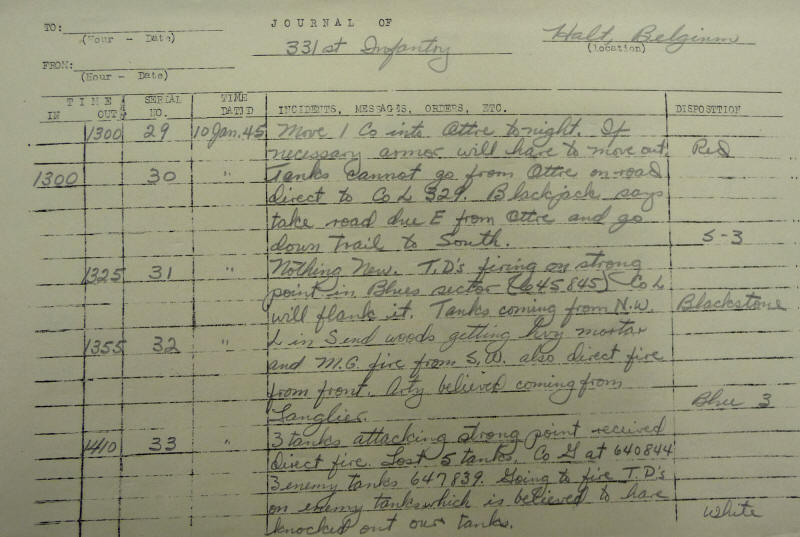 TO: JOURNAL OF
(Hour - Date) 331st Infantry Halt, Belgium
(location)
FROM:
(Hour - Date)
TIME SERIAL TIME
IN OUT NO. DATED INCIDENTS, MESSAGES, ORDERS, ETC. DISPOSITION
1300 29 10 Jan. 45 Move 1 Co into Ottre tonight. If
necessary armor will have to move out. Red
1300 30 " Tanks cannot go from Ottre on road
direct to Co L 329. Blackjack says
take road due E from Ottre and go
down trail to South. S-3
1325 31 " Nothing New. T.D's firing on strong
point in Blues sector (645845) Co L
will flank it. Tanks coming from N.W. Blackstone
1355 32 " L in S end woods getting hvy mortar
and M.G. fire from S.W. also direct fire
from front. Arty believed coming from
Langlier. Blue 3
1410 33 " 3 tanks attacking strong point received
direct fire. Lost 5 tanks, Co G at 640844
3 enemy tanks 647839. Going to fire T.D's
on enemy tanks which is believed to have
knocked out our tanks. White